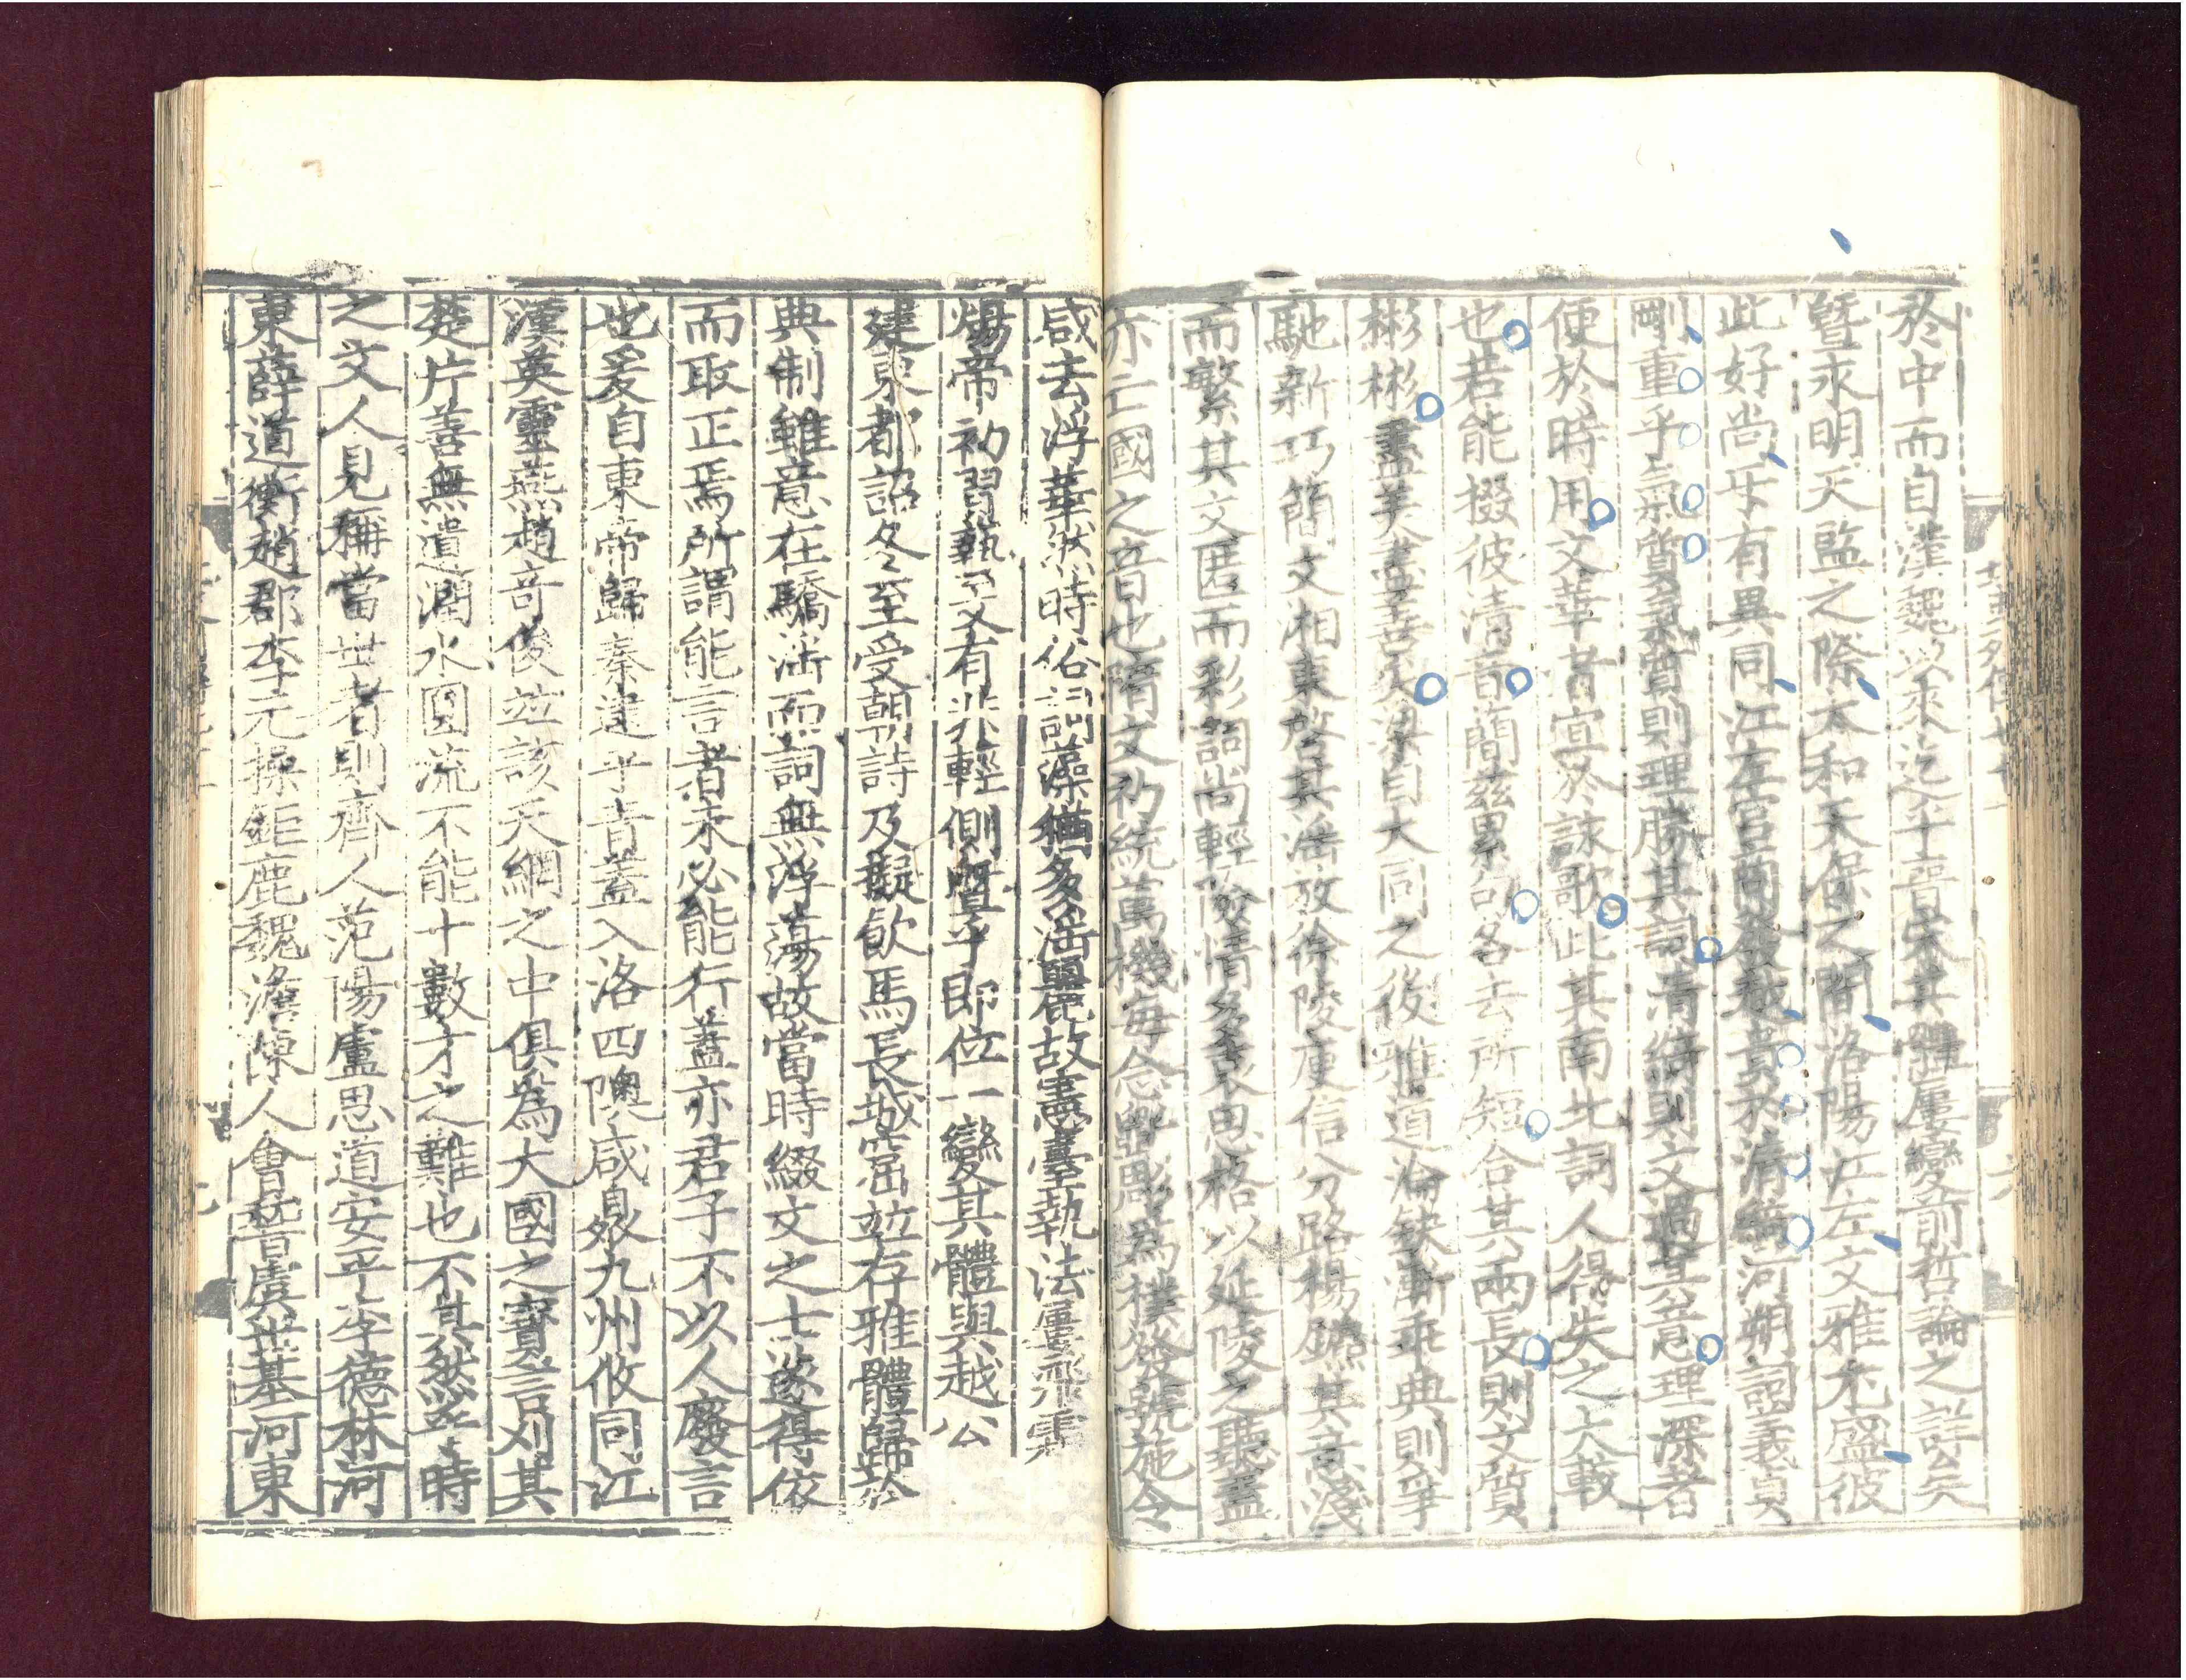 於中而自漢魏以来迄乎晉宋其體屢變前哲論之詳矣
曁永明天監之際太和天保之間洛陽江左文雅尤盛彼
此好尚乎有異同江左宮商發越貴於清綺河朔詞義貞
剛重乎氣質氣質則理勝其詞清綺則文過其意理深者
便於時用文華者宜於詠歌此其南北詞人得失之大較
也若能掇彼清音簡茲累句各去所短合其兩長則文質
彬彬盡美盡善矣梁自大同之後雅道淪缺漸乖典則爭
馳新巧簡文湘東啓其淫放徐陵庾信分路楊鑣其意淺
而繁其文匿而彩詞尚輕險情多哀思格以延陵之聽蓋
亦亡國之音也隋文初統萬機每念斲彫爲樸發號施令
咸去浮華然時俗詞藻猶多淫麗故憲臺執法屢飛霜
煬帝初習藝文有非輕側曁乎即位一變其體與越公
建東都詔冬至受朝詩及擬飲馬長城窟並存雅體歸於
典制雖意在驕淫而詞無浮蕩故當時綴文之士遂得依
而取正焉所謂能言者未必能行蓋亦君子不以人廢言
也爰自東帝歸秦逮乎青蓋入洛四隩咸曁九州攸同江
漢英靈燕趙奇俊並該天網之中俱爲大國之寶言刈其
楚片善無遺潤水圓流不能十數才之難也不其然乎時
之文人見稱當世者則齊人范陽盧思道安平李德林河
東薛道衡趙郡李元操鉅鹿魏澹陳人會稽虞世基河東